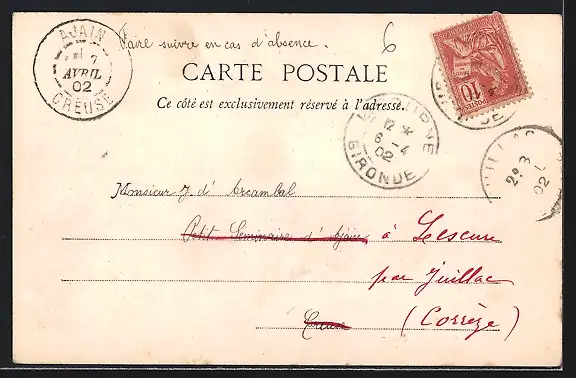 AJAIN
7
AVRIL
02
CREUSE
Faire suivre en cas d'absence.
6
CARTE POSTALE
Ce côté est exclusivement réservé à l'adresse.
10
POSTES
12 *
6 - 4
02
GIRONDE
2E 3
02
Monsieur J. d' Arcambal
Petit Séminaire d'Ajain à Lescure
par Juillac
Creuse (Corrèze)